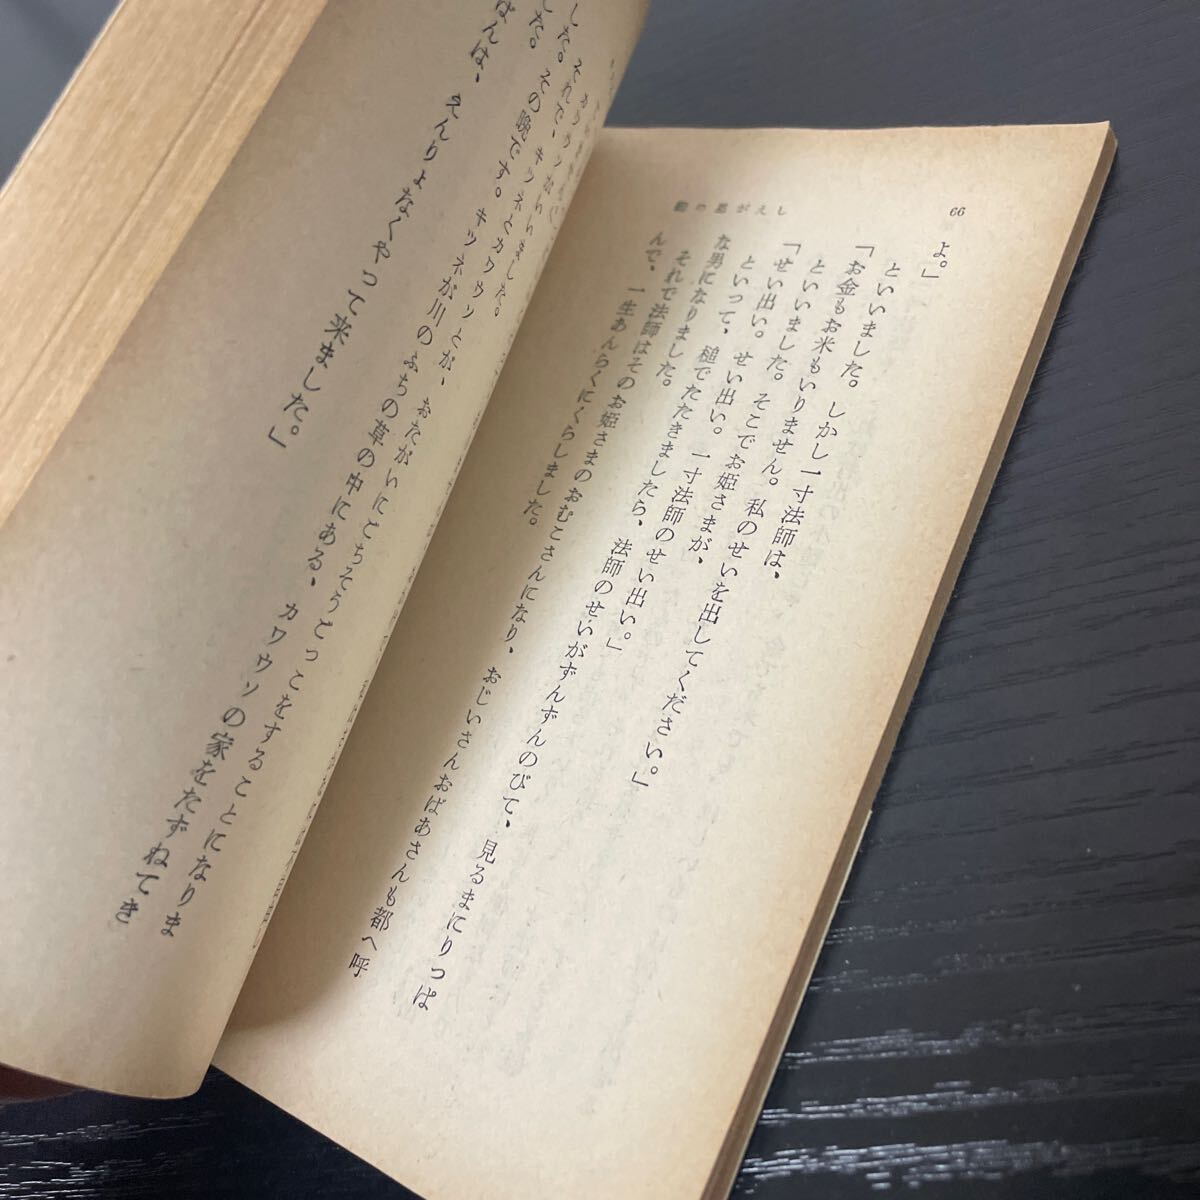 66
の恩がえし
よ。」
といいました。しかし一寸法師は、
「お金もお米もいりません。私のせいを出してください。」
といいました。そこでお姫さまが、
「せい出い。せい出い。一寸法師のせい出い。」
といって、槌でたたきましたら、法師のせいがずんずんのびて、見るまにりっぱ
な男になりました。
それで法師はそのお姫さまのおむこさんになり、おじいさんおばあさんも都へ呼
んで、一生あんらくにくらしました。
キツネとカワウソとが、おたがいにごちそうごっこをすることになりま
した。その晩です。キツネが川のふちの草の中にある、カワウソの家をたずねてき
ばんは、えんりょなくやって来ました。」
した。それで、キツネがいいました。